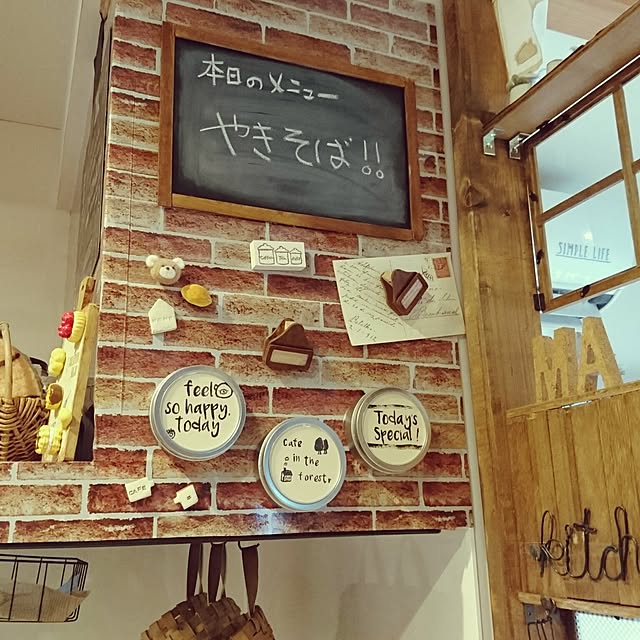 本日のメニュー
やきそば!!
SIMPLE LIFE
MA
feel
so happy,
today
Cafe
in the
forest
Todays
Special!
CAFE
kitch